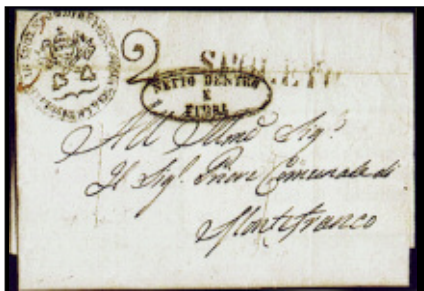 2
SPOLETO
NETTO DENTRO
E
FUORI
All' Illmo Sigr
Il Sigr Priore Comunale di
Montefranco